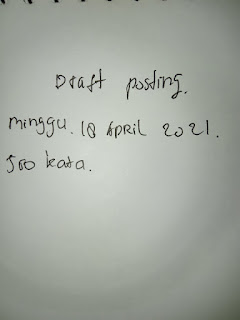 Draft posting.
Minggu. 18 April 2021.
500 kata.